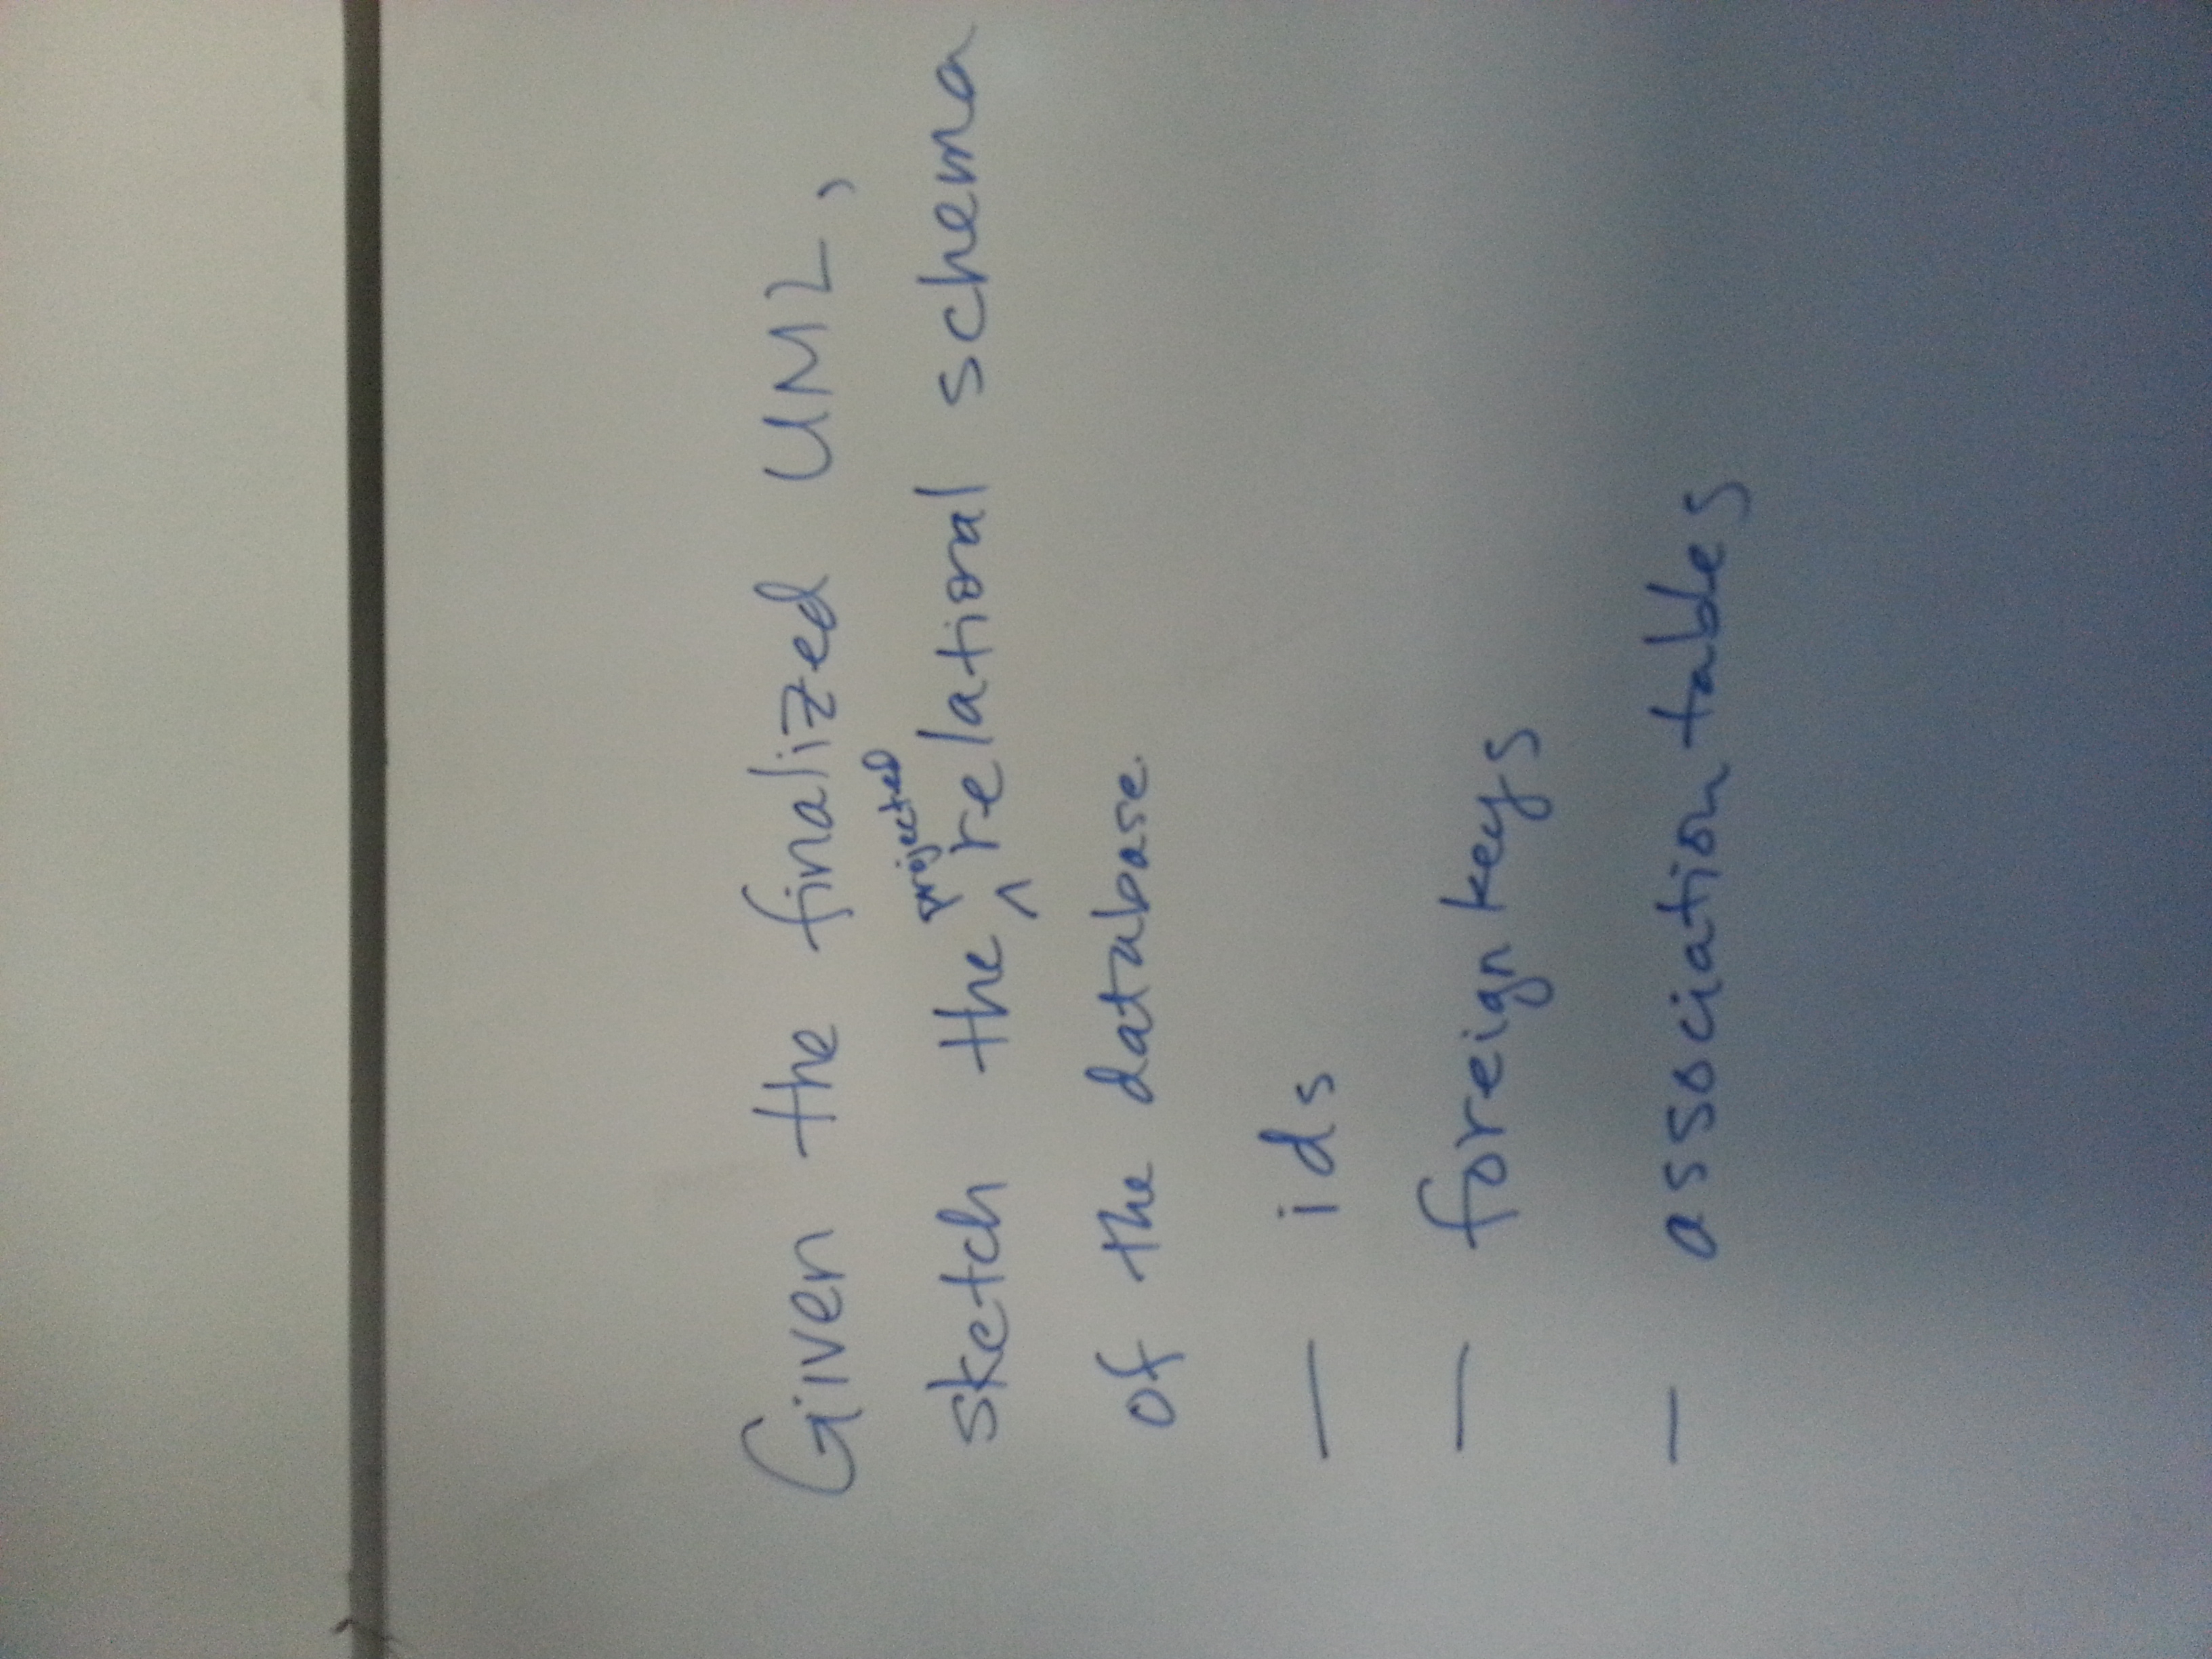 Given the finalized UML,
sketch the ^ projected relational schema
of the database.
— ids
— foreign keys
— association tables